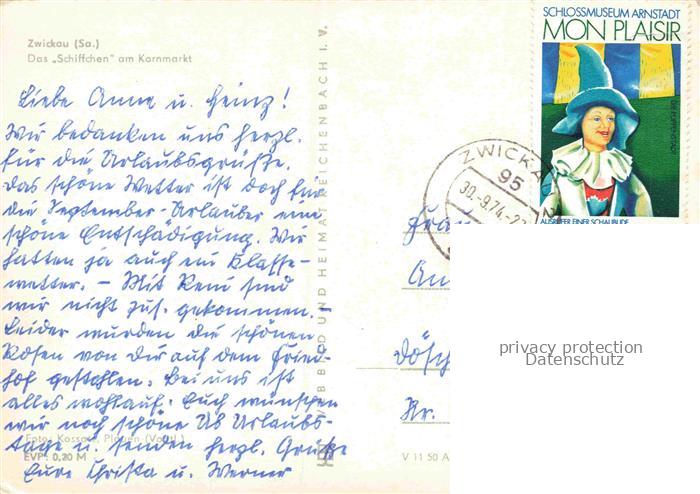 Zwickau (Sa.)
Das „Schiffchen" am Kornmarkt
Liebe Anne u. Heinz!
Wir bedanken uns herzl.
für die Urlaubsgrüße.
Das schöne Wetter ist doch für
die September-Urlauber eine
schöne Entschädigung. Wir
hatten ja auch ein Klasse-
wetter. – Mit Reni sind
wir nicht zus. gekommen. –
Leider wurden die schönen
Rosen von Dir auf dem Fried-
hof gestohlen. Bei uns ist
alles wohlauf. Euch wünschen
wir noch schöne Urlaubs-
tage u. senden herzl. Grüße
Eure Christa u. Werner
Foto: Kossatz, Plauen (Vogtl.)
EVP: 0,20 M
BILD UND HEIMAT REICHENBACH I. V.
V 11 50 A
SCHLOSSMUSEUM ARNSTADT
MON PLAISIR
AUSRUFER EINER SCHAUBUDE
ZWICKAU 2
95
30.-9.74.-2
Frau
An
Dösch
Nr.
privacy protection
Datenschutz